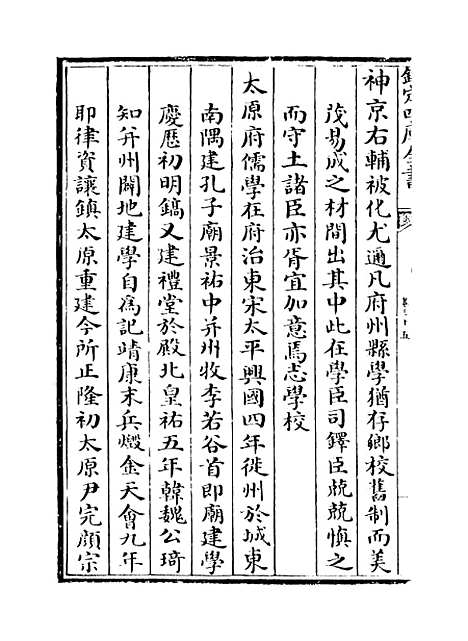 欽定四庫全書
神京右輔被化尤通凡府州縣學猶存鄉校舊制而美
茂易成之材間出其中此在學臣司鐸臣兢兢慎之
而守土諸臣亦胥宜加意焉志學校
太原府儒學在府治東宋太平興國四年徙州於城東
南隅建孔子廟景祐中并州牧李若谷首即廟建學
慶歷初明鎬又建禮堂於殿北皇祐五年韓魏公琦
知并州闢地建學自為記靖康末兵燬金天會九年
耶律資讓鎮太原重建今所正隆初太原尹完顏宗